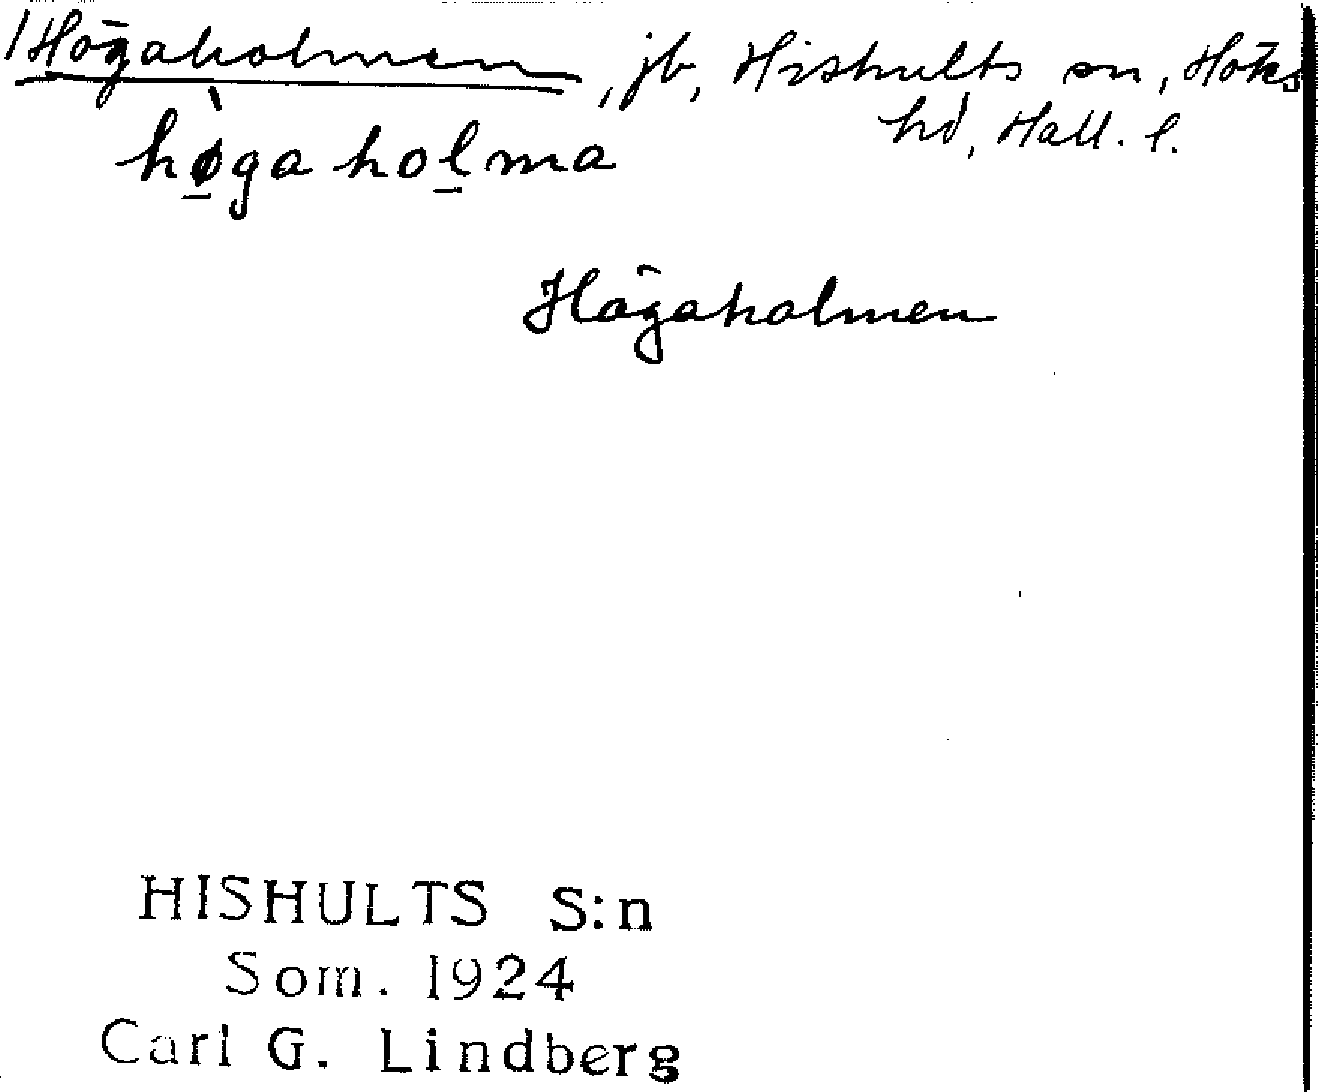 Högaholmen, jb, Hishults sn, Höks
hd, Hall. l.
hø̀gaholma
Högaholmen
HISHULTS S:n
Som. 1924
Carl G. Lindberg